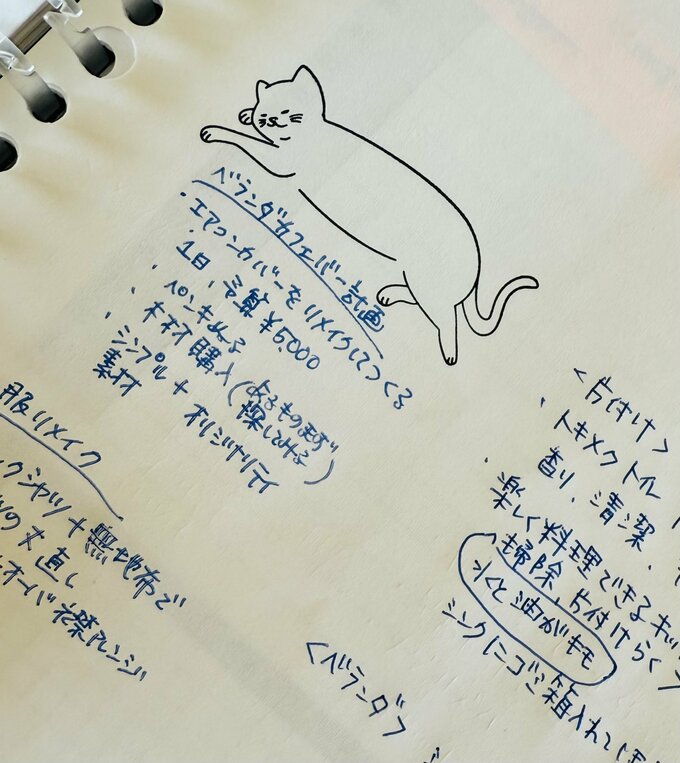 ベランダカフェバー計画
・エアコンカバーをリメイクしてつくる
1日、予算¥5,000
・ペンキぬる
・木材購入(あるものまず探してみる)
・シンプル+オリジナリティ
素材
服リメイク
クシャツ+無地布で
の丈直し
オーバー襟アレンジ
<片付け>
・トキメクトイレ
香り、清潔
・楽しく料理できるキッ
掃除、片付けらく
水と油がキモ
シンクにゴミ箱入れて
<ベランダ>